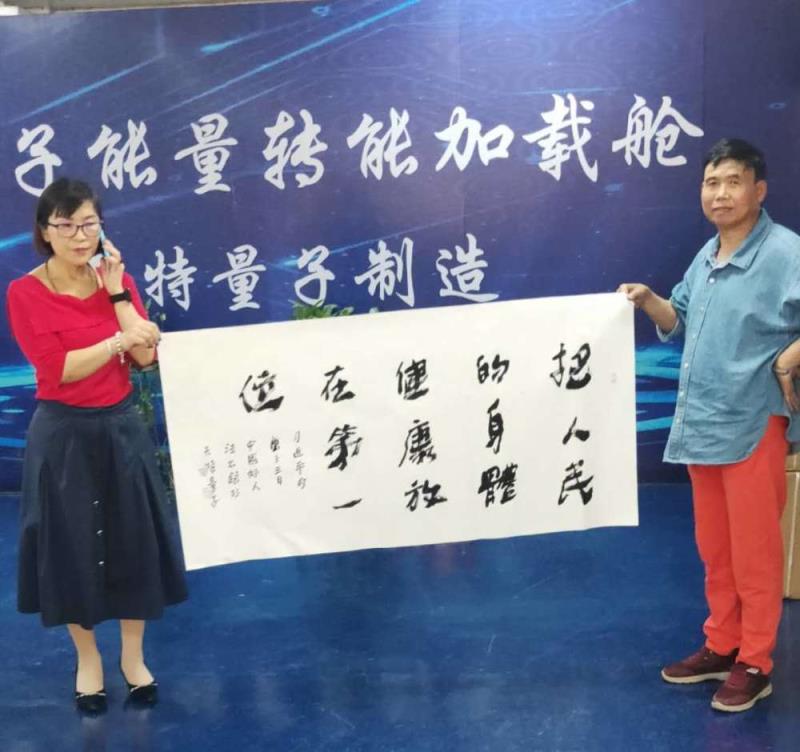 子能量转能加载舱
特量子制造
把人民
的身體
健康放
在第一
位
习近平句
三日
中國好人
量子